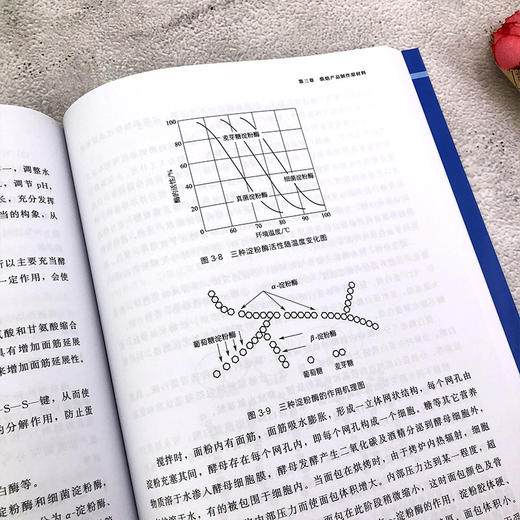 一，调整水
，调节 pH，
长，充分发挥
当的构象，从
所以主要充当酵
一定作用，会使
氨酸和甘氨酸缩合
具有增加面筋延展
来增加面筋延展性。
-S—S—键，从而使
的分解作用，防止蛋
白酶等。
淀粉酶和细菌淀粉酶，
分为 α-淀粉酶、
第三章 烘焙产品制作原材料
酶的活性/%
100
80
60
40
20
0
麦芽糖淀粉酶
真菌淀粉酶
细菌淀粉酶
50 60 70 80 90 100
环境温度/℃
图 3-8 三种淀粉酶活性随温度变化图
α-淀粉酶
葡萄糖淀粉酶
β-淀粉酶
葡萄糖 麦芽糖
图 3-9 三种淀粉酶的作用机理图
搅拌时，面粉内有面筋，面筋吸水膨胀，形成一立体网状结构，每个网孔由
淀粉充塞其间，酵母存在每个网孔内，即每个网孔构成一个细胞，糖等其它营养
物质溶于水渗入酵母细胞膜，酵母发酵产生二氧化碳及酒精分泌到酵母细胞外，
溶于水，有的被包围于细胞内。当面包在烘烤时，由于烤炉内热辐射，细胞
内部压力而使面包体积增大，内部压力达到某一程度，超
面包在此阶段稍微缩小，这时面包颜色及骨
的作用，淀粉胶体硬、
面包体积小。